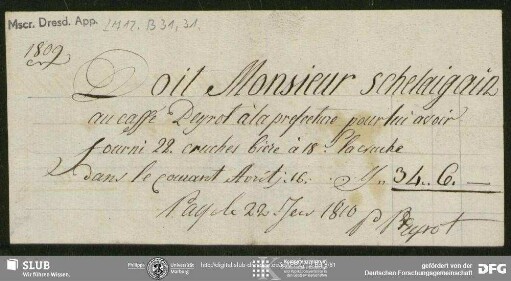 Mscr. Dresd. App.
1809
Doit Monsieur Schelaigain
au caffé Peyrot à la prefecture pour lui avoir
fourni 22 cruches biere à 18 s la cruche
dans le courant Avril
34.. 6.
Payé le 22 1810
Peyrot
SLUB
Wir führen Wissen.
Philipps
Universität
Marburg
http://digital.slub-
gefördert von der
Deutschen Forschungsgemeinschaft
DFG